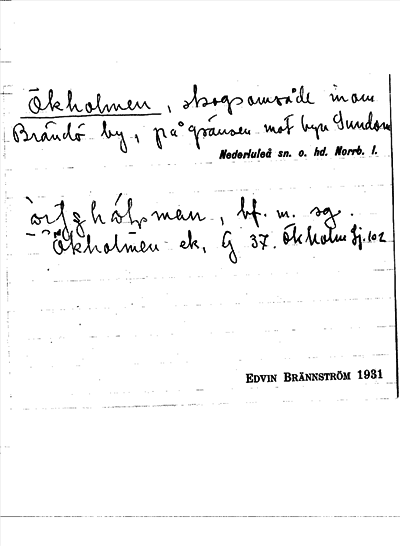 Ökholmen, skogsområde inom
Brändö by, på gränsen mot byn Sundom
Nederluleå sn. o. hd. Norrb. l.
bf. m. sg.
Ökholmen ek. G 37. Ökholm Lj. 102
EDVIN BRÄNNSTRÖM 1931